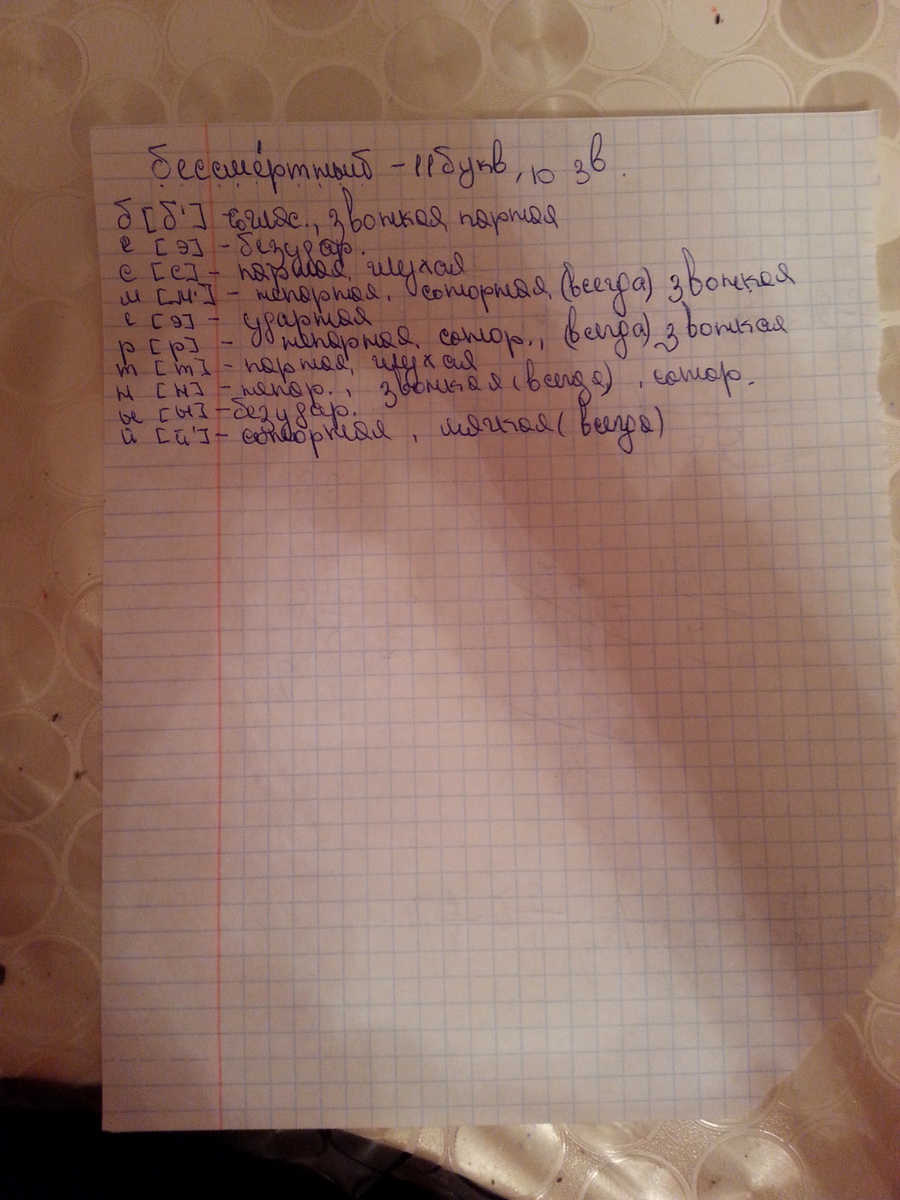 бессме́ртный - 11 букв, 10 зв.
б [б'] соглас., звонкая парная
е [э] - безудар.
с [с] - парная, глухая
м [м'] - непарная, сонорная, (всегда) звонкая
е [э] - ударная
р [р] - непарная, сонор., (всегда) звонкая
т [т] - парная, глухая
н [н] - непар., звонкая (всегда), сонор.
ы [ы] - безудар.
й [й'] - сонорная, мягкая (всегда)